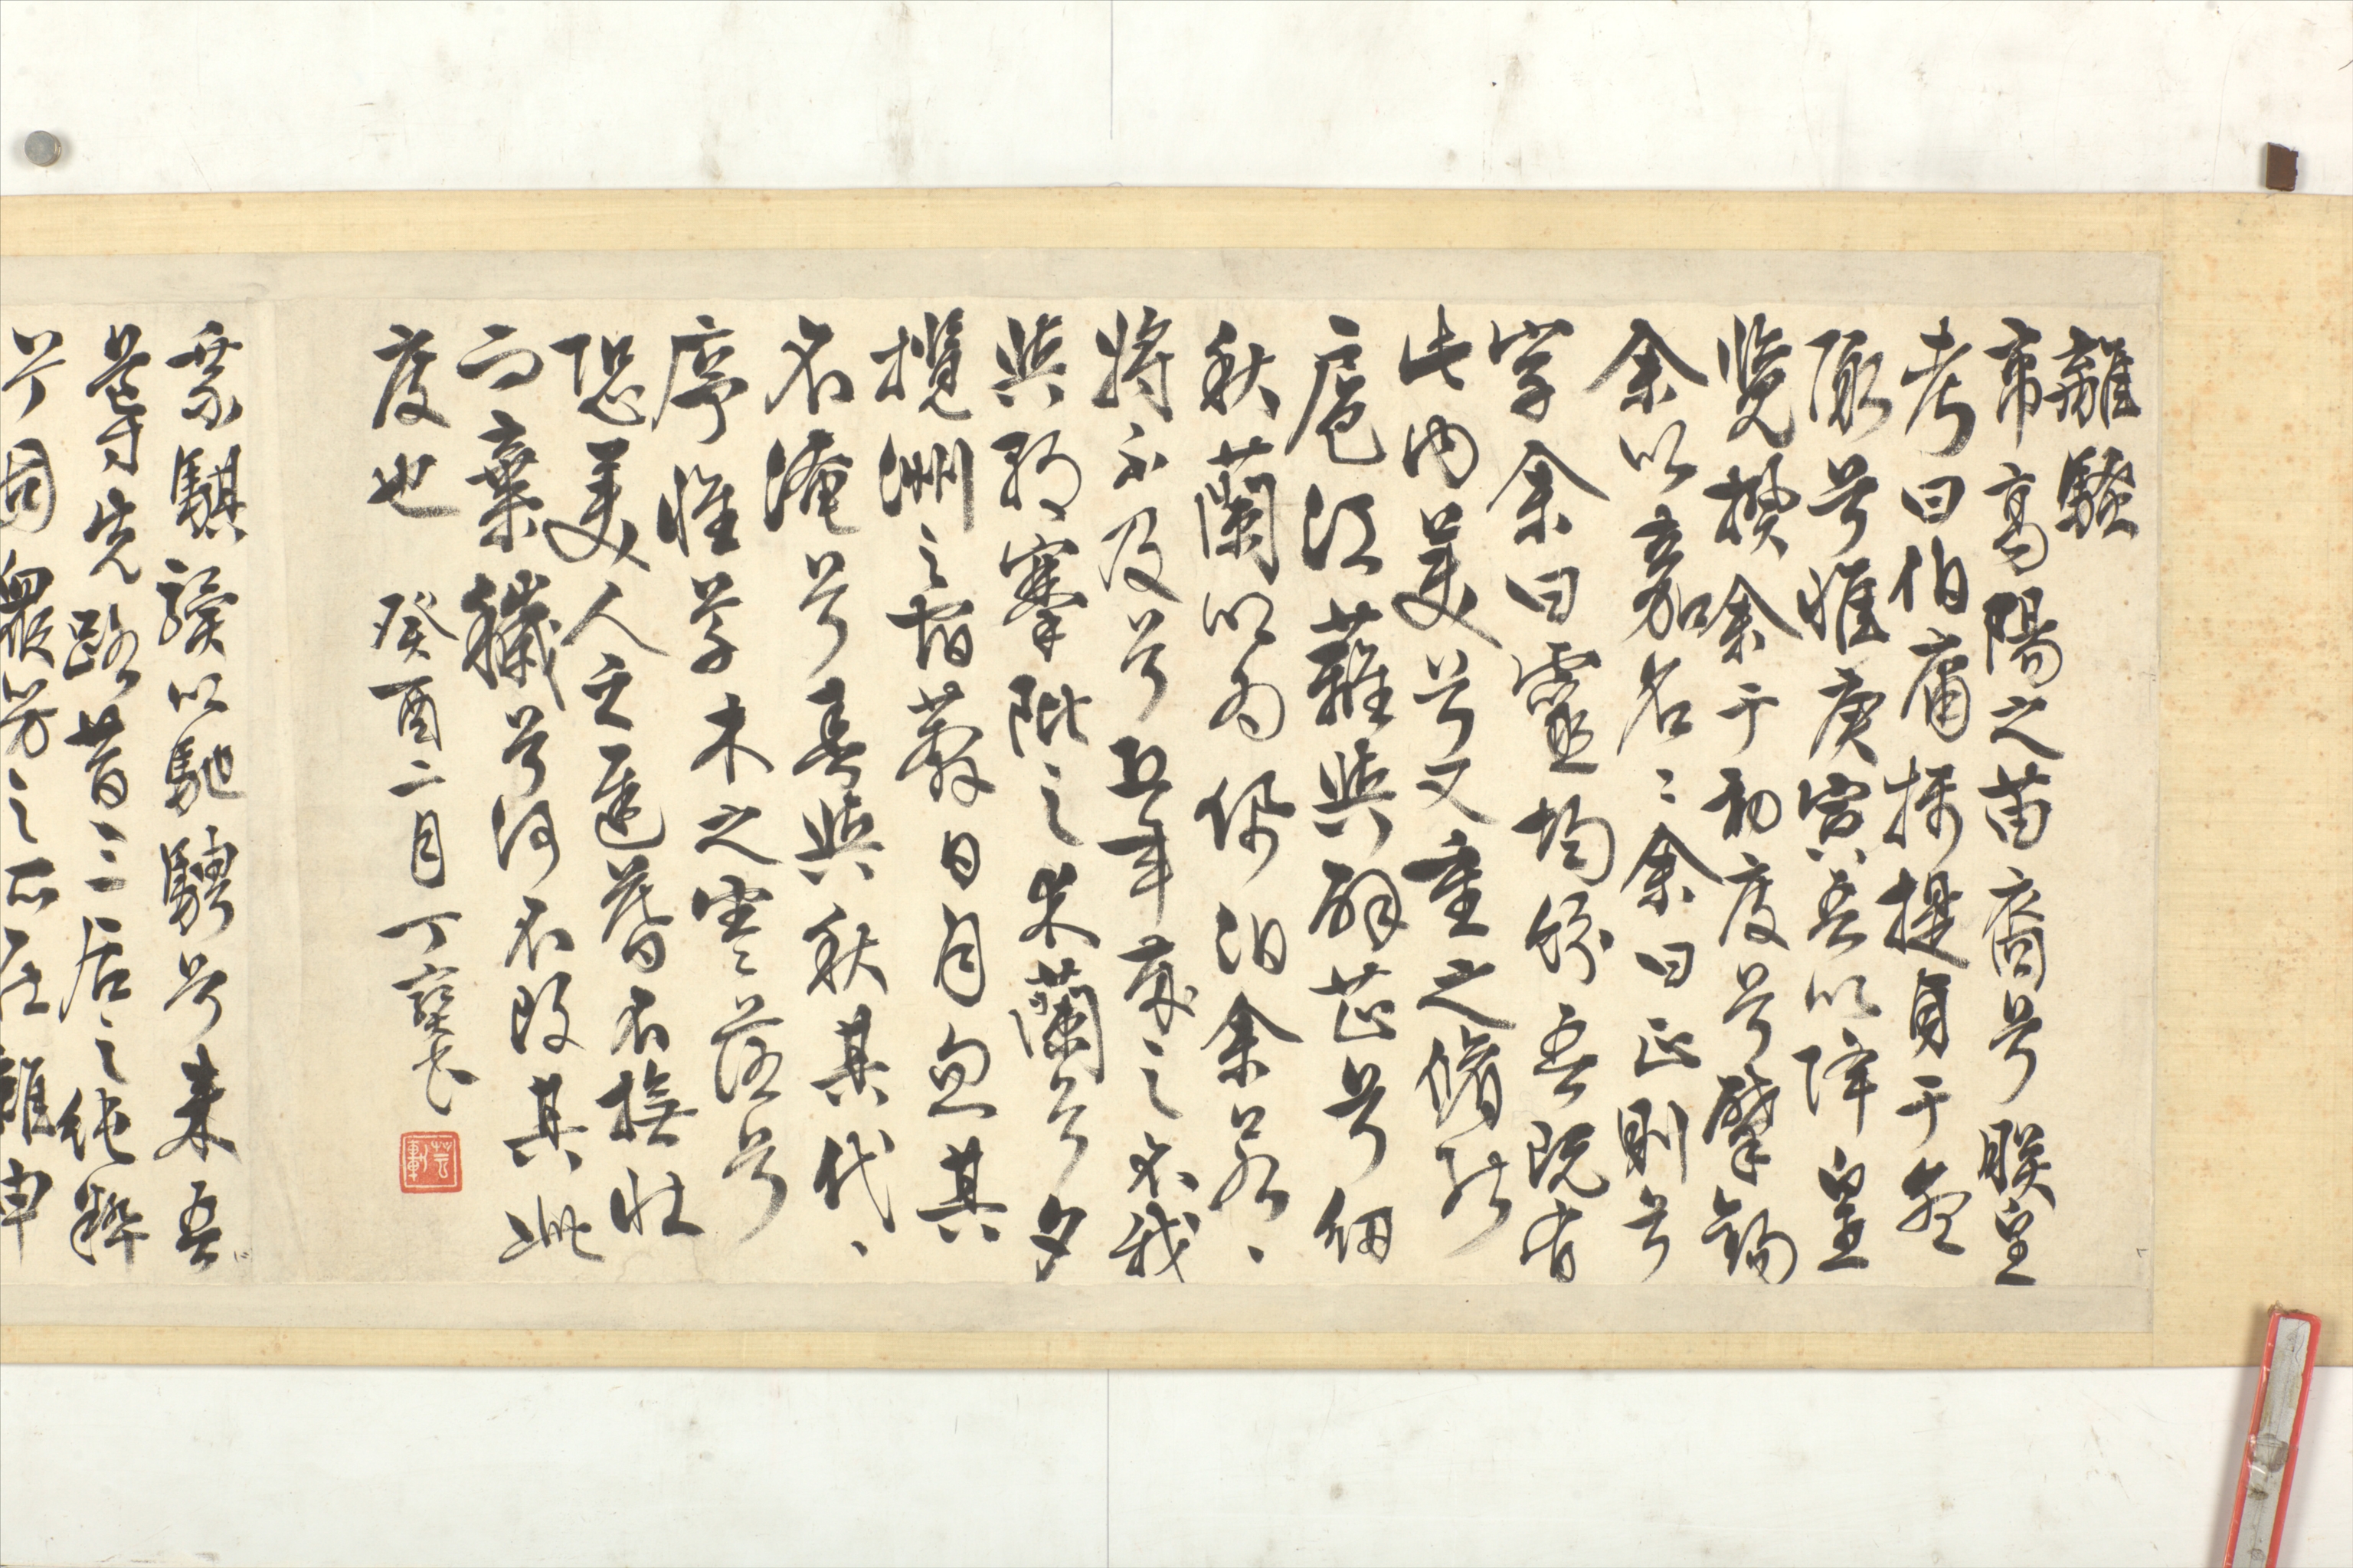 離騷
帝高陽之苗裔兮朕皇
考曰伯庸攝提貞于孟
陬兮惟庚寅吾以降皇
覽揆余于初度兮肇錫
余以嘉名名余曰正則兮
字余曰靈均紛吾既有
此內美兮又重之脩能
扈江蘺與辟芷兮紉
秋蘭以為佩汩余若
將不及兮恐年歲之不我
與朝搴阰之木蘭兮夕
攬洲之宿莽日月忽其
不淹兮春與秋其代
序惟草木之零落兮
恐美人之遲暮不撫壯
而棄穢兮何不改其此
度也 癸酉二月丁
乘騏驥以馳騁兮來吾
導先路昔三后之純粹
兮固眾芳之所在雜申